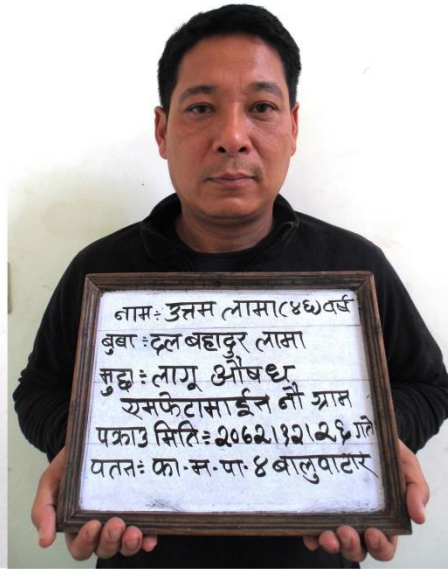 नाम÷ उत्तम लामा(४६)वर्ष
बुबा ÷ दल बहादुर लामा
मुद्दा ÷ लागू औषध
एमफेटामाईन नौ ग्राम
पक्राउ मिति÷ २०६२।१२।२६ गते
वतन÷ का-म-पा-४ बालुवाटार